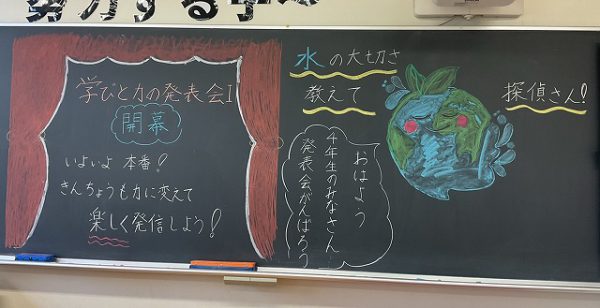 努力する学
学びと力の発表会I
開幕
いよいよ 本番!
きんちょうも力に変えて
楽しく発信しよう!
水の大切さ
教えて
探偵さん!
おはよう
4年生のみなさん
発表会がんばろう